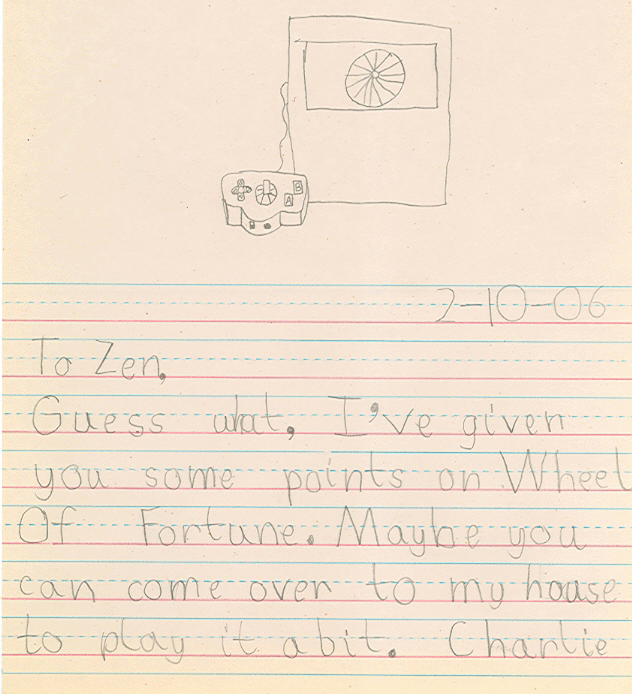 B
A
2-10-06
To Zen,
Guess what, I've given
you some points on Wheel
Of Fortune. Maybe you
can come over to my house
to play it a bit. Charlie